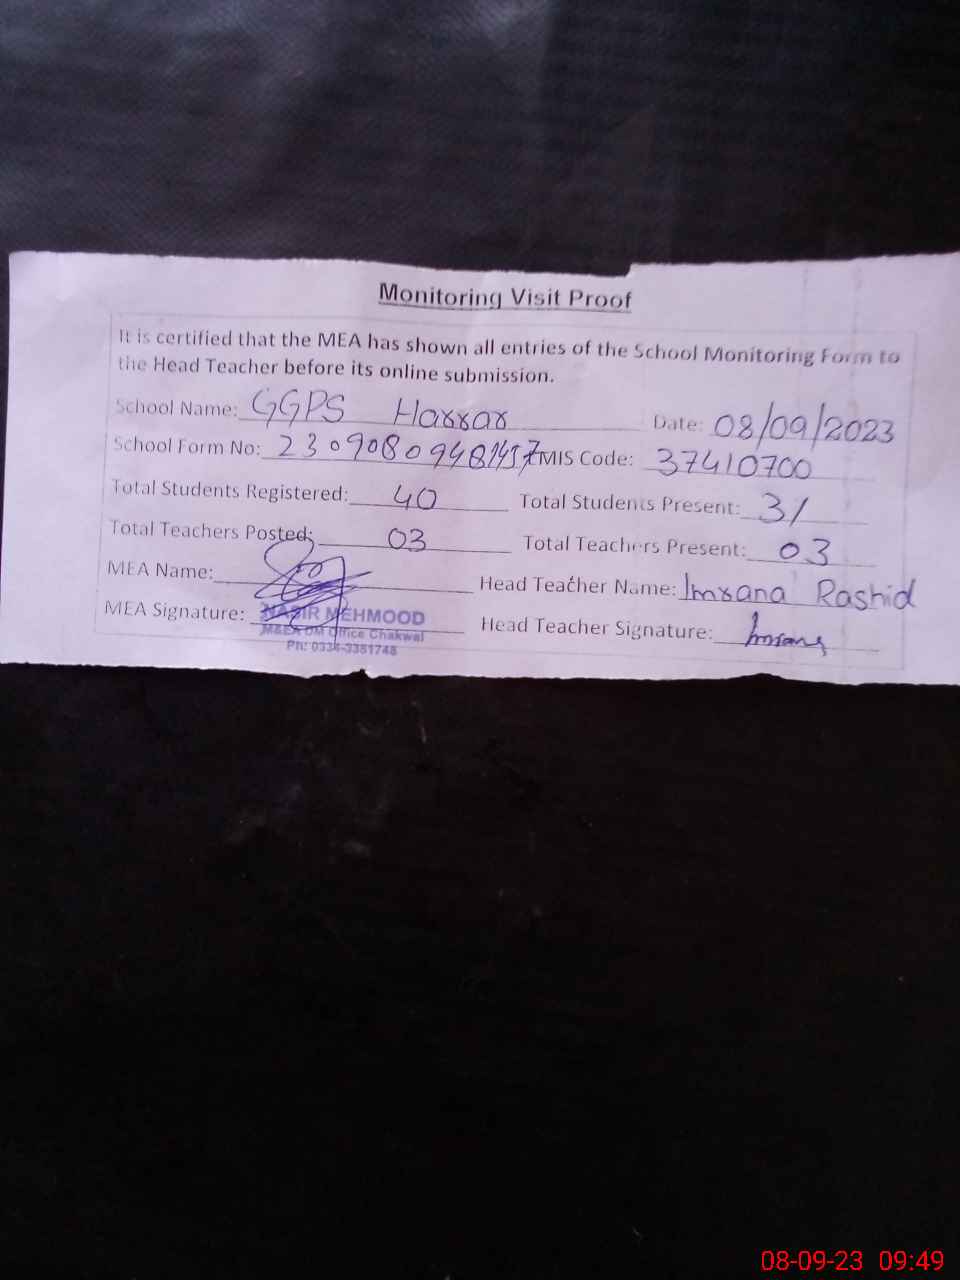 Monitoring Visit Proof
It is certified that the MEA has shown all entries of the School Monitoring Form to
the Head Teacher before its online submission.
School Name: GGPS Harrar Date: 08/09/2023
School Form No: EMIS Code: 37410700
Total Students Registered: 40 Total Students Present: 31
Total Teachers Posted: 03 Total Teachers Present: 03
MEA Name: Head Teacher Name: Imrana Rashid
MEA Signature: NASIR MEHMOOD Head Teacher Signature: Imrana
M&EA DM Office Chakwal
Ph: 0334-3381748
08-09-23 09:49